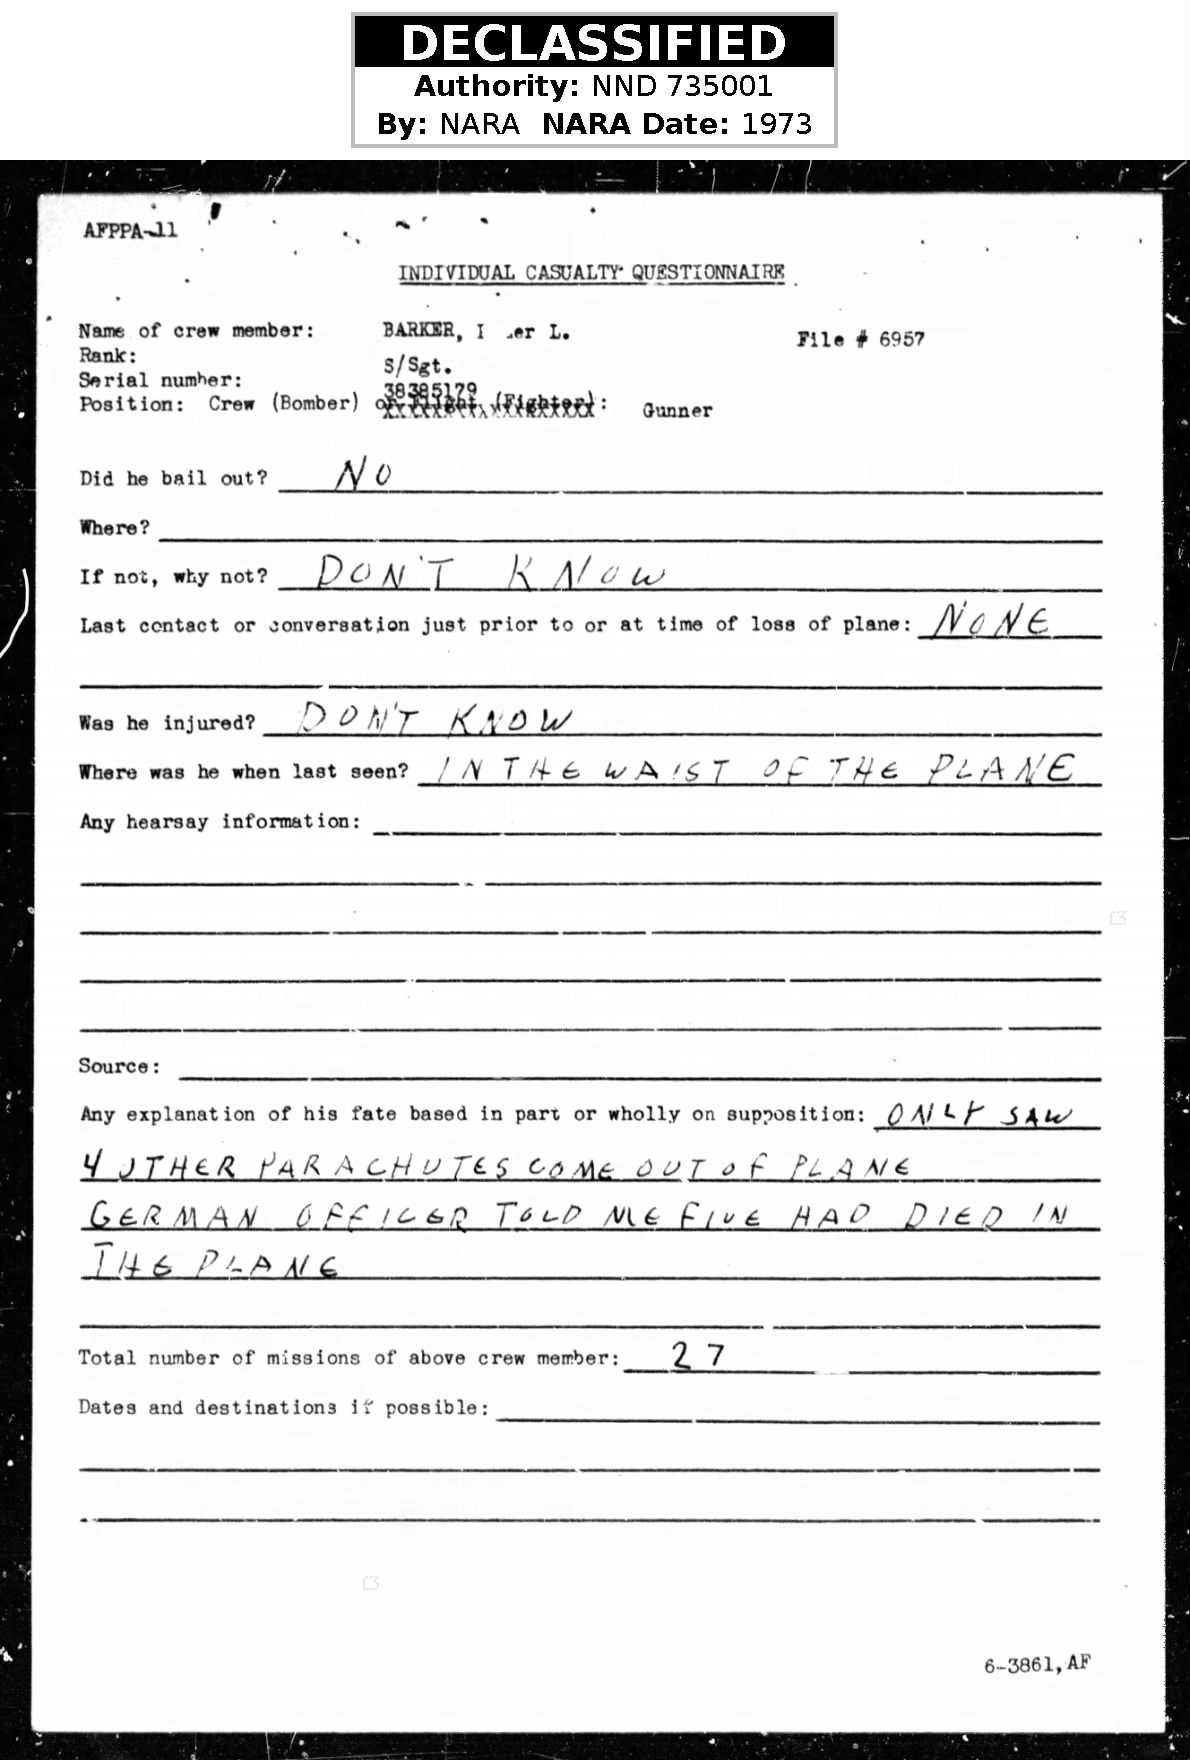 DECLASSIFIED
Authority: NND 735001
By: NARA NARA Date: 1973
AFPPA-11
INDIVIDUAL CASUALTY QUESTIONNAIRE
Name of crew member: BARKER, I er L.
File # 6957
Rank: S/Sgt.
Serial number: 38385179
Position: Crew (Bomber) or Flight (Fighter): Gunner
Did he bail out? NO
Where?
If not, why not? DON'T KNOW
Last contact or conversation just prior to or at time of loss of plane: NONE
Was he injured? DON'T KNOW
Where was he when last seen? IN THE WAIST OF THE PLANE
Any hearsay information:
Source:
Any explanation of his fate based in part or wholly on supposition: ONLY SAW
4 OTHER PARACHUTES COME OUT OF PLANE
GERMAN OFFICER TOLD ME FIVE HAD DIED IN
THE PLANE
Total number of missions of above crew member: 27
Dates and destinations if possible:
6-3861, AF